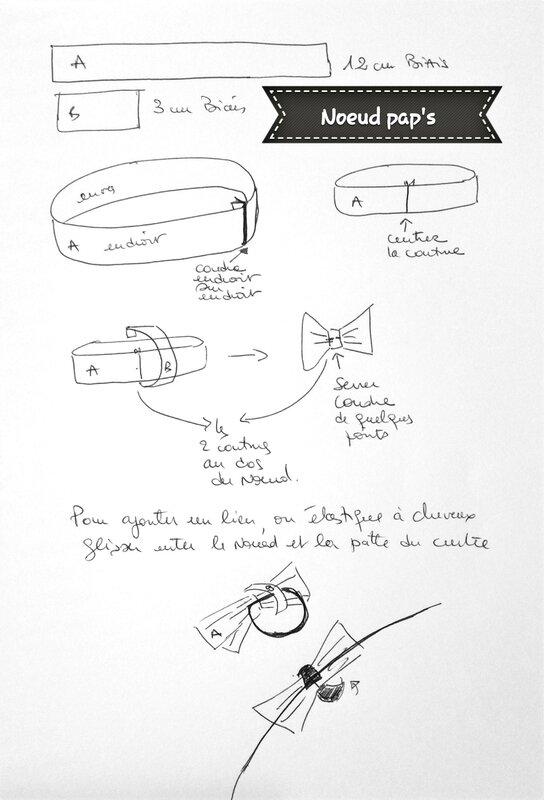 A
12 cm Biais
B
3 cm Biais
Noeud pap's
envers
A endroit
A
coudre
endroit
sur
endroit
centrer
la couture
A
B
Serrer
Coudre
de quelques
points
les
2 coutures
au dos
du Noeud.
Pour ajouter un lien, ou élastique à cheveux
glisser entre le Noeud et la patte du centre
A